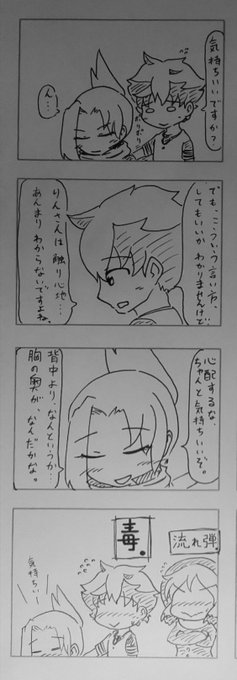 気持ちいいですか？
ん…
でも、こういう言い方、
してもいいかわかりませんけど
りんさんは触り心地…
あんまりわからないですよね
心配するな、
ちゃんと気持ちいいぞ。
背中より、なんというか…
胸の奥が、なんだかな。
流れ弾
毒。
気持ちいー